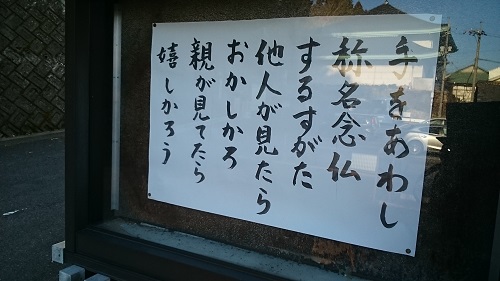 手をあわし
称名念仏
するすがた
他人が見たら
おかしかろ
親が見てたら
嬉しかろう